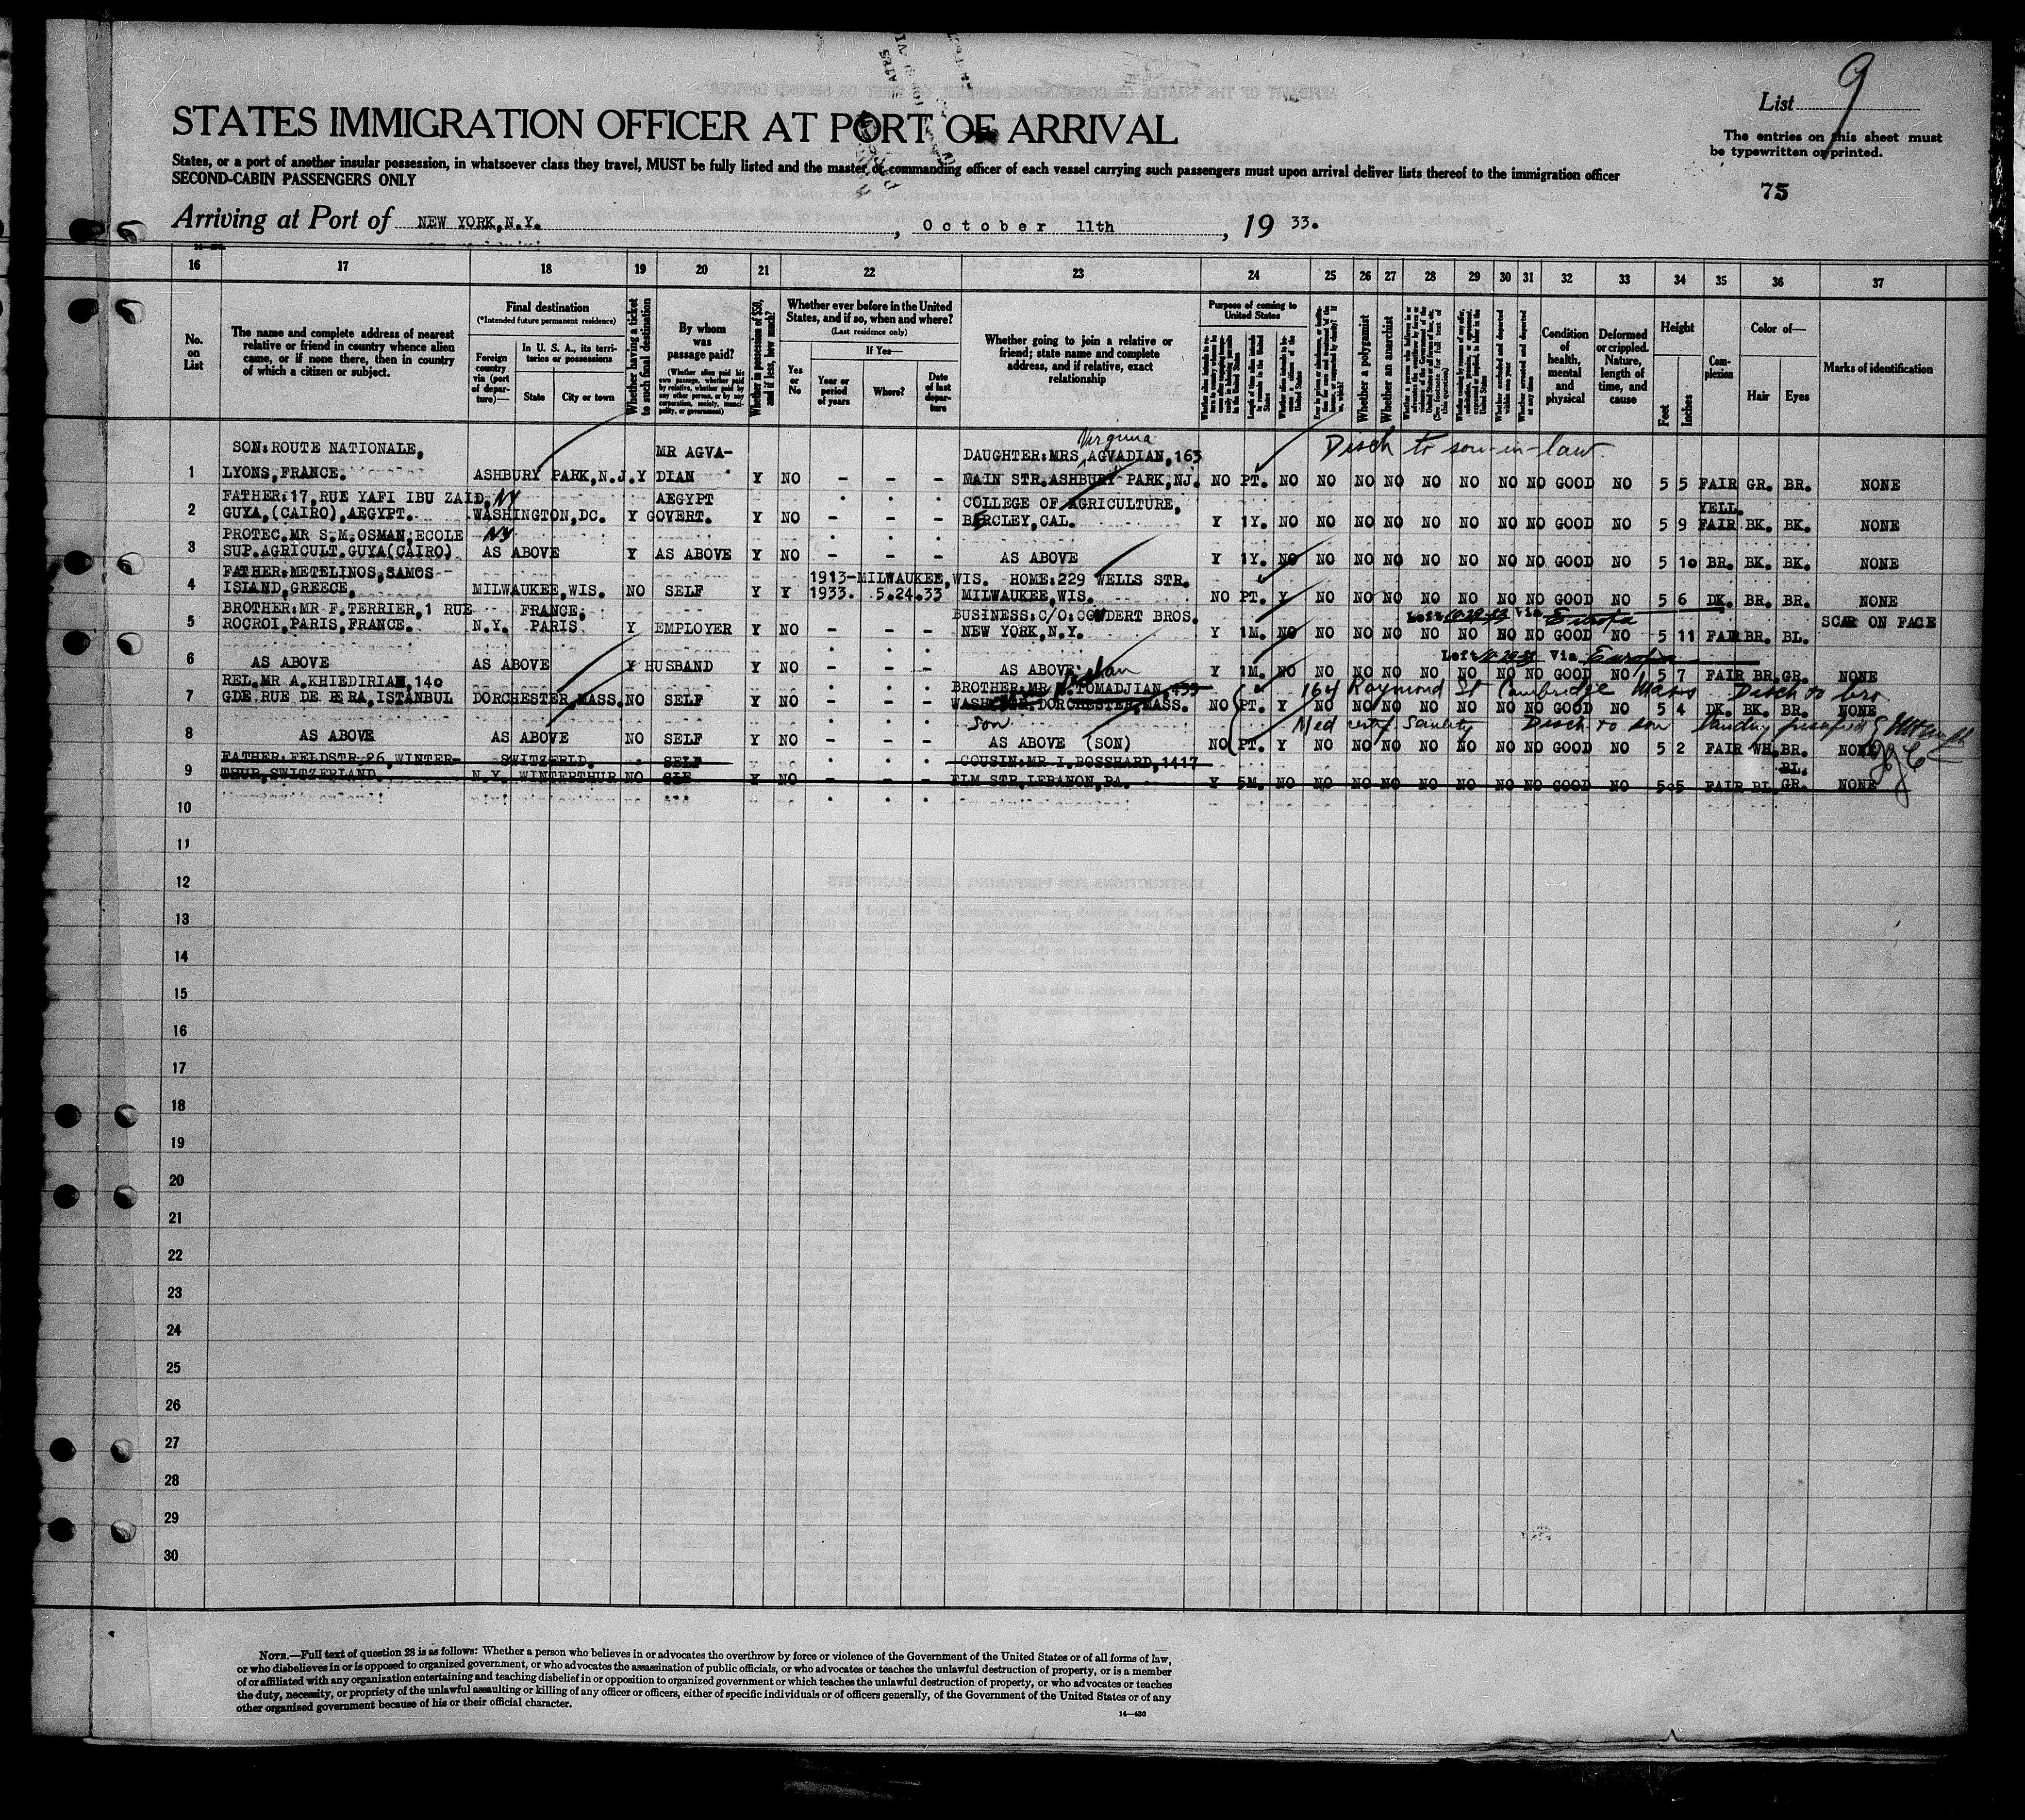 List 9
STATES IMMIGRATION OFFICER AT PORT OF ARRIVAL
The entries on this sheet must
be typewritten or printed.
States, or a port of another insular possession, in whatsoever class they travel, MUST be fully listed and the master or commanding officer of each vessel carrying such passengers must upon arrival deliver lists thereof to the immigration officer
SECOND-CABIN PASSENGERS ONLY
75
Arriving at Port of NEW YORK,N.Y. , October 11th , 19 33.
16 17 18 19 20 21 22 23 24 25 26 27 28 29 30 31 32 33 34 35 36 37
No. on List
The name and complete address of nearest relative or friend in country whence alien came, or if none there, then in country of which a citizen or subject.
Final destination
(*Intended future permanent residence)
Foreign country via (port of departure)—
In U. S. A., its territories or possessions
State
City or town
Whether having a ticket to such final destination
By whom was passage paid?
(Whether alien paid his own passage, whether paid by relative, whether paid by any other person, or by any corporation, society, municipality, or government)
Whether in possession of $50, and if less, how much?
Whether ever before in the United States, and if so, when and where?
(Last residence only)
Yes or No
If Yes—
Year or period of years
Where?
Date of last departure
Whether going to join a relative or friend; state name and complete address, and if relative, exact relationship
Purpose of coming to United States
Length of time alien intends to remain in the United States
Whether a polygamist
Whether an anarchist
Whether arrested and deported at any time
Condition of health, mental and physical
Deformed or crippled. Nature, length of time, and cause
Height
Feet
Inches
Complexion
Color of—
Hair
Eyes
Marks of identification
SON:ROUTE NATIONALE, MR AGVA- Virginia Disch to son-in-law.
DAUGHTER:MRS AGVADIAN,163
1 LYONS,FRANCE. ASHBURY PARK,N.J. Y DIAN Y NO - - - MAIN STR.ASHBURY PARK,NJ. NO PT. NO NO NO NO NO NO NO NO GOOD NO 5 5 FAIR GR. BR. NONE
FATHER:17,RUE YAFI IBU ZAID, NY AEGYPT COLLEGE OF AGRICULTURE, YELL.
2 GUYA,(CAIRO),AEGYPT. WASHINGTON,DC. Y GOVERT. Y NO - - - BERCLEY,CAL. Y 1Y. NO NO NO NO NO NO NO NO GOOD NO 5 9 FAIR BK. BK. NONE
PROTEC.MR S.M.OSMAN,ECOLE NY
3 SUP.AGRICULT.GUYA(CAIRO) AS ABOVE Y AS ABOVE Y NO - - - AS ABOVE Y 1Y. NO NO NO NO NO NO NO NO GOOD NO 5 10 BR. BK. BK. NONE
FATHER:METELINOS,SAMOS 1913-MILWAUKEE,WIS. HOME:229 WELLS STR.
4 ISLAND,GREECE, MILWAUKEE,WIS. NO SELF Y Y 1933. 5.24.33 MILWAUKEE,WIS. NO PT. Y NO NO NO NO NO NO NO GOOD NO 5 6 DK. BR. BR. NONE
BROTHER:MR F.TERRIER,1 RUE FRANCE, BUSINESS:C/O:COUDERT BROS. Via Europa SCAR ON FACE
5 ROCROI,PARIS,FRANCE. N.Y. PARIS Y EMPLOYER Y NO - - - NEW YORK,N.Y. Y 1M. NO NO NO NO NO NO NO NO GOOD NO 5 11 FAIR BR. BL.
Left Via Europa
6 AS ABOVE AS ABOVE Y HUSBAND Y NO - - - AS ABOVE. Y 1M. NO NO NO NO NO NO NO NO GOOD NO 5 7 FAIR BR. GR. NONE
REL.MR A.KHIEDIRIAN,140 BROTHER:MR TOMADJIAN,433 164 Raymond St Cambridge Mass Disch to bro.
7 GDE RUE DE PERA,ISTANBUL DORCHESTER,MASS. NO SELF Y NO - - - DORCHESTER,MASS. NO PT. Y NO NO NO NO NO NO NO GOOD NO 5 4 DK. BK. BR. NONE
son Med certif Senility Disch to son
8 AS ABOVE AS ABOVE NO SELF Y NO - - - AS ABOVE (SON) NO PT. Y NO NO NO NO NO NO NO GOOD NO 5 2 FAIR WH. BR. NONE
FATHER:FELDSTR.26,WINTER- SWITZERLD. SELF COUSIN:MR I.BOSSHARD,1417 BL.
9 THUR,SWITZERLAND. N.Y. WINTERTHUR NO Y NO ELM STR,LEBANON,PA. Y 5M. NO NO NO NO NO NO NO NO GOOD NO 5 5 FAIR BL. GR. NONE
10
11
12
13
14
15
16
17
18
19
20
21
22
23
24
25
26
27
28
29
30
NOTE.—Full text of question 28 is as follows: Whether a person who believes in or advocates the overthrow by force or violence of the Government of the United States or of all forms of law,
or who disbelieves in or is opposed to organized government, or who advocates the assassination of public officials, or who advocates or teaches the unlawful destruction of property, or is a member
of or affiliated with any organization entertaining and teaching disbelief in or opposition to organized government or which teaches the unlawful destruction of property, or who advocates or teaches
the duty, necessity, or propriety of the unlawful assaulting or killing of any officer or officers, either of specific individuals or of officers generally, of the Government of the United States or of any
other organized government because of his or their official character.
14—430